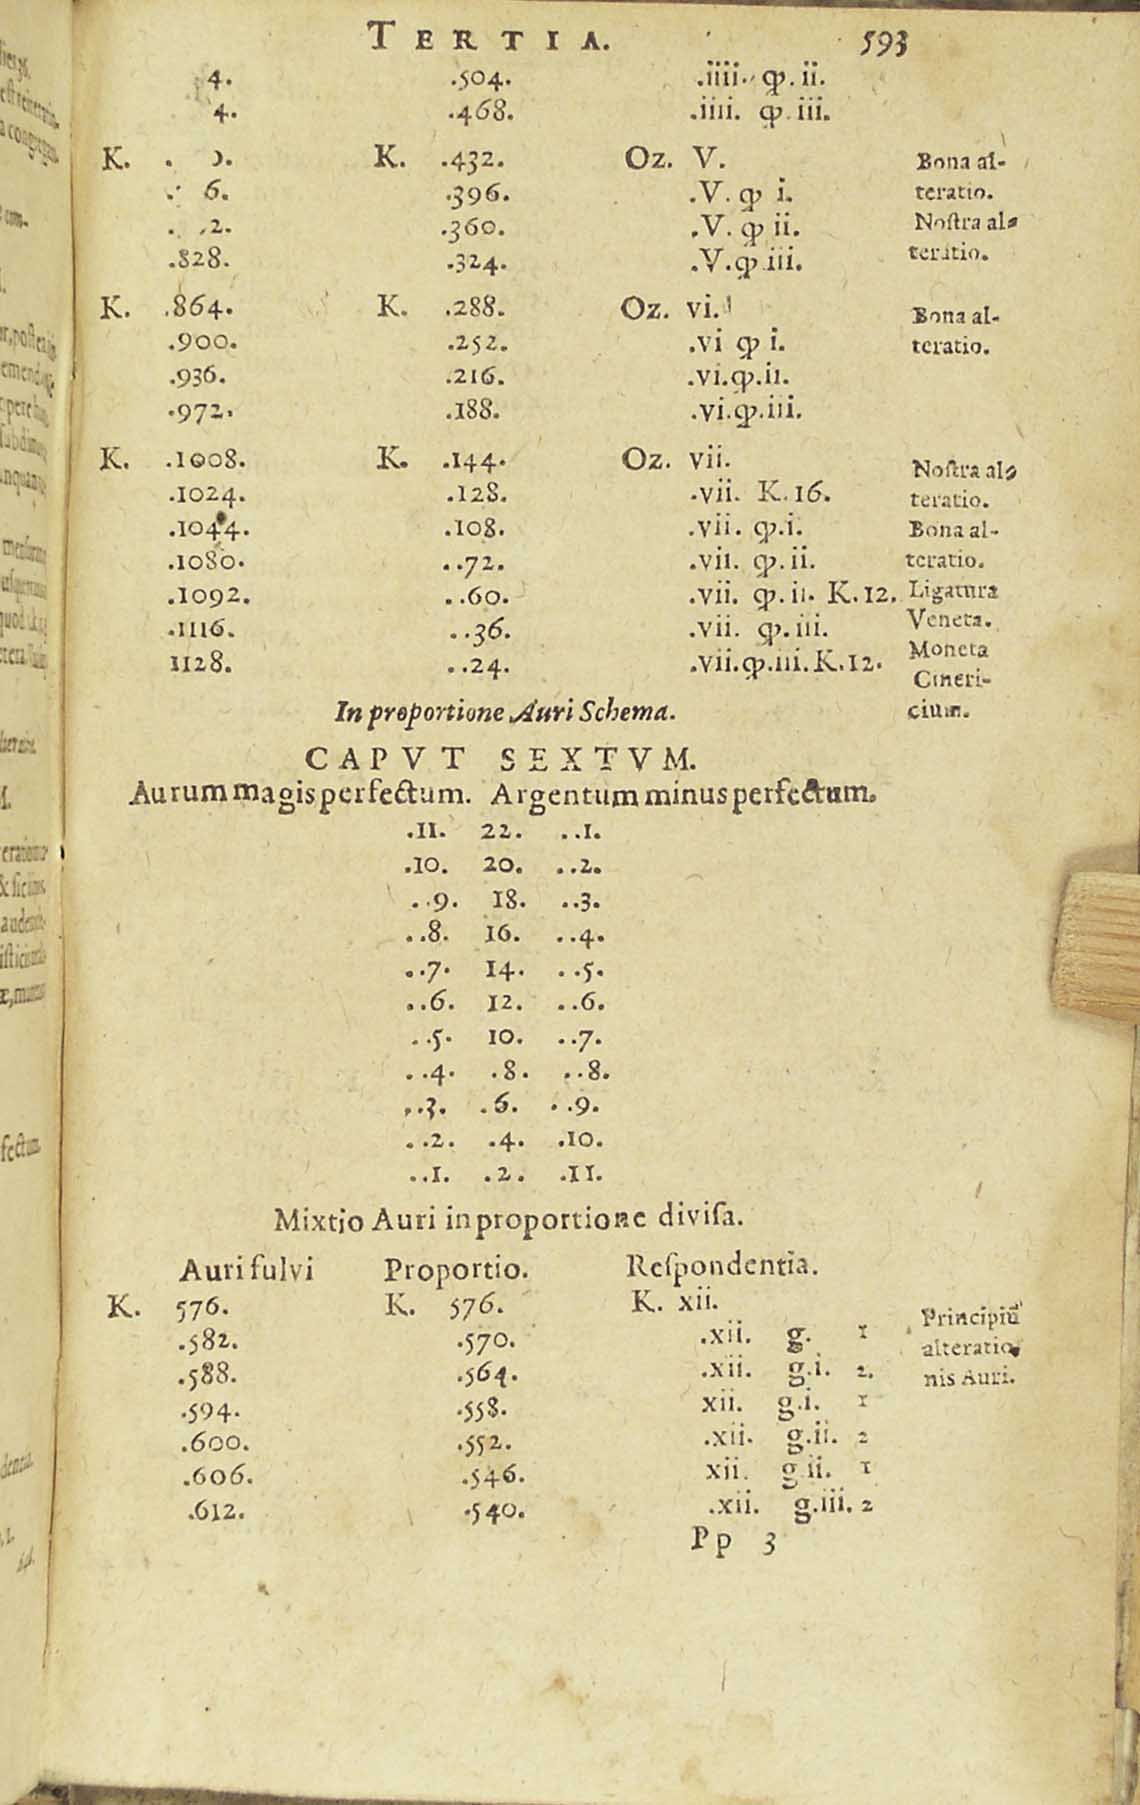 TERTIA. 593
4. .504. .iiii. qp. ii.
4. .468. .iiii. qp. iii.
K. K. .432. Oz. V. Bona al-
6. .396. .V. qp i. teratio.
2. .360. .V. qp ii. Nostra al-
.828. .324. .V. qp iii. teratio.
K. .864. K. .288. Oz. vi. Bona al-
.900. .252. .vi qp i. teratio.
.936. .216. .vi. qp. ii.
.972. .188. .vi. qp. iii.
K. .1008. K. .144. Oz. vii. Nostra al-
.1024. .128. .vii. K. 16. teratio.
.1044. .108. .vii. qp. i. Bona al-
.1080. ..72. .vii. qp. ii. teratio.
.1092. ..60. .vii. qp. ii. K. 12. Ligatura
.1116. ..36. .vii. qp. iii. Veneta.
1128. ..24. .vii. qp. iii. K. 12. Moneta
Cineri-
cium.
In proportione Auri Schema.
CAPVT SEXTVM.
Aurum magis perfectum. Argentum minus perfectum.
.11. 22. ..1.
.10. 20. ..2.
..9. 18. ..3.
..8. 16. ..4.
..7. 14. ..5.
..6. 12. ..6.
..5. 10. ..7.
..4. .8. ..8.
..3. .6. ..9.
..2. .4. .10.
..1. .2. .11.
Mixtio Auri in proportione divisa.
Auri fulvi Proportio. Respondentia.
K. 576. K. 576. K. xii. Principiũ
.582. .570. .xii. g. 1 alteratio
.588. .564. .xii. g.i. 2. nis Auri.
.594. .558. xii. g.i. 1
.600. .552. .xii. g.ii. 2
.606. .546. xii. g ii. 1
.612. .540. .xii. g.iii. 2
Pp 3